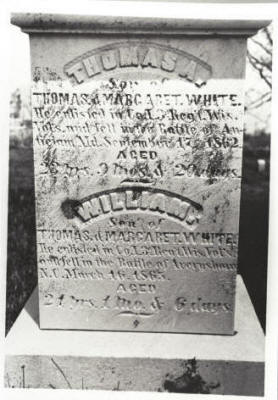 THOMAS A.
Son of
THOMAS. & MARGARET. WHITE.
He enlisted in Co. I. 3 Reg't. Wis.
Vol's. and fell in the Battle of An-
tietam, Md. September 17. 1862
AGED
9 mo's &
WILLIAM
Son of
THOMAS. & MARGARET. WHITE.
He enlisted in Co. I. 3 Reg't Wis. Vol's
and fell in the Battle of Averysboro
N.C. March 16. 1865.
AGED
21 yrs. 1 mo. & 6 days